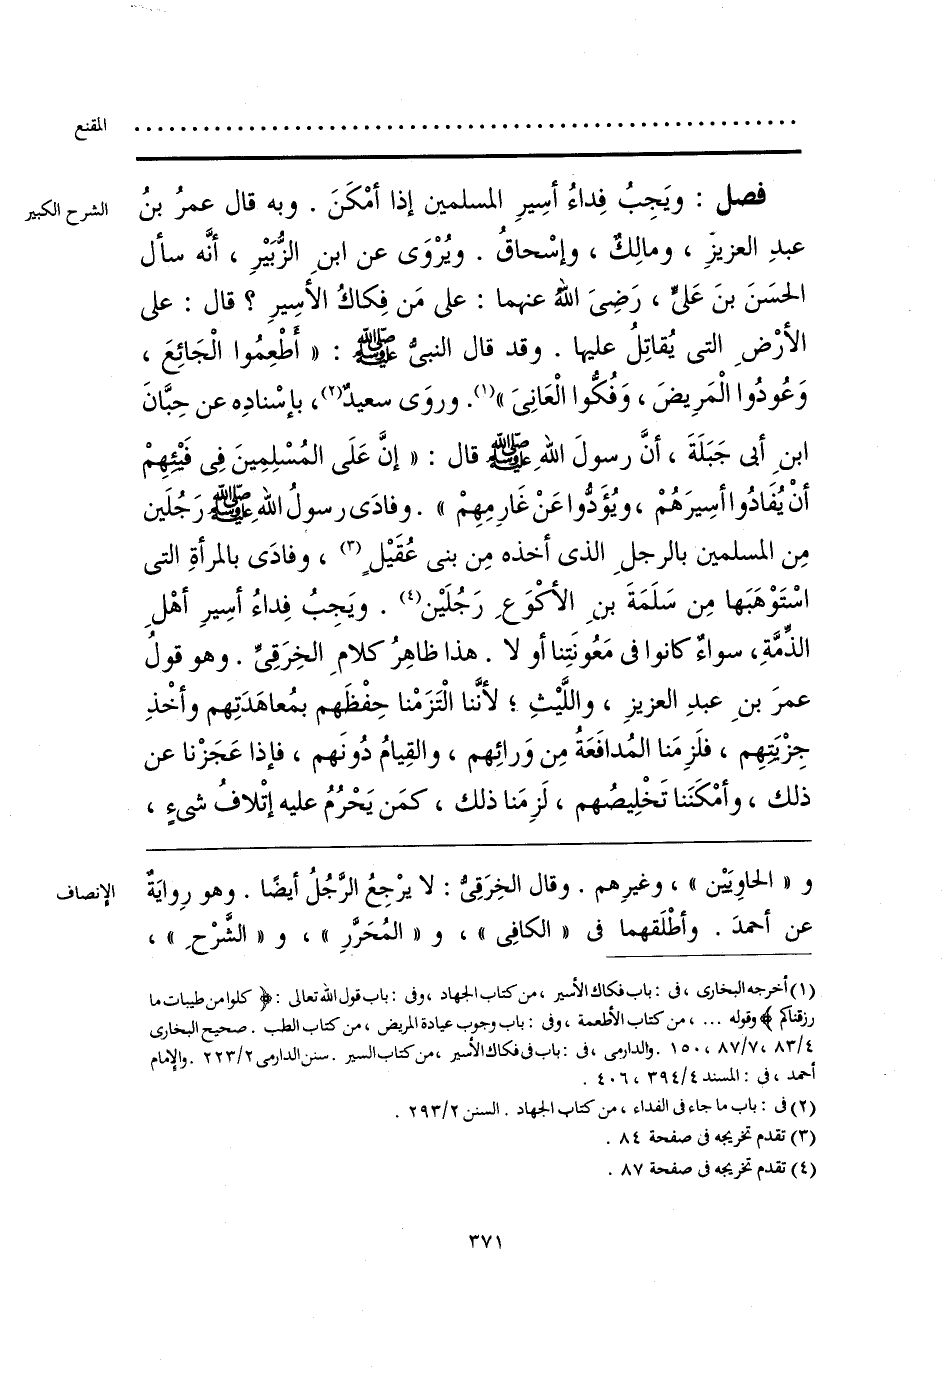 المقنع ............................................................
الشرح الكبير
فصل : ويَجِبُ فِداءُ أسِيرِ المسلمين إذا أمْكَنَ . وبه قال عمرُ بنُ
عبدِ العزيزِ ، ومالِكٌ ، وإسْحاقُ . ويُرْوَى عن ابنِ الزُّبَيْرِ ، أنَّه سأل
الحَسَنَ بنَ عَليٍّ ، رَضِىَ اللهُ عنهما : على مَن فِكاكُ الأسِيرِ ؟ قال : على
الأرْضِ التى يُقاتِلُ عليها . وقد قال النبىُّ ﷺ : « أَطْعِمُوا الْجَائِعَ ،
وَعُودُوا الْمَرِيضَ ، وَفُكُّوا الْعَانِىَ »(١). وروَى سعيدٌ(٢)، بإسْنادِه عن حِبَّانَ
ابنِ أبى جَبَلَةَ ، أنَّ رسولَ اللهِ ﷺ قال : « إنَّ عَلَى المُسْلِمِينَ فِى فَيْئِهِمْ
أنْ يُفَادُوا أسِيرَهُمْ ، ويُؤَدُّوا عَنْ غَارِمِهِمْ » . وفادَى رسولُ اللهِ ﷺ رَجُلَين
مِن المسلمين بالرجلِ الذى أخذه مِن بنى عُقَيْلٍ(٣) ، وفادَى بالمرأةِ التى
اسْتَوْهَبَها مِن سَلَمَةَ بنِ الأكْوَعِ رَجُلَيْن(٤) . ويَجِبُ فِداءُ أسِيرِ أهْلِ
الذِّمَّةِ، سواءٌ كانوا فى مَعُونَتِنا أو لا . هذا ظاهِرُ كلامِ الخِرَقِىِّ . وهو قولُ
عمرَ بنِ عبدِ العزيزِ ، واللَّيْثِ ؛ لأنَّنا الْتَزَمْنا حِفْظَهم بمُعاهَدَتِهم وأخْذِ
جِزْيَتِهم ، فلَزِمَنا المُدافَعَةُ مِن وَرائِهم ، والقِيامُ دُونَهم ، فإذا عَجَزْنا عن
ذلك ، وأمْكَنَنا تَخْلِيصُهم ، لَزِمَنا ذلك ، كمَن يَحْرُمُ عليه إتْلافُ شىءٍ ،
الإنصاف
و « الحاوِيَيْن » ، وغيرِهم . وقال الخِرَقِىُّ : لا يرْجِعُ الرَّجُلُ أيضًا . وهو رِوايَةٌ
عن أحمدَ . وأطْلَقهما فى « الكافِى » ، و « المُحَرَّرِ » ، و « الشَّرْحِ » ،
(١) أخرجه البخارى ، فى : باب فكاك الأسير ، من كتاب الجهاد ، وفى : باب قول الله تعالى : ﴿ كلوا من طيبات ما
رزقناكم ﴾ وقوله ... ، من كتاب الأطعمة ، وفى : باب وجوب عيادة المريض ، من كتاب الطب . صحيح البخارى
٨٣/٤ ، ٨٧/٧ ، ١٥٠ . والدارمى ، فى : باب فى فكاك الأسير ، من كتاب السير . سنن الدارمى ٢٢٣/٢ . والإمام
أحمد ، فى : المسند ٣٩٤/٤ ، ٤٠٦ .
(٢) فى : باب ما جاء فى الفداء ، من كتاب الجهاد . السنن ٢٩٣/٢ .
(٣) تقدم تخريجه فى صفحة ٨٤ .
(٤) تقدم تخريجه فى صفحة ٨٧ .
٣٧١